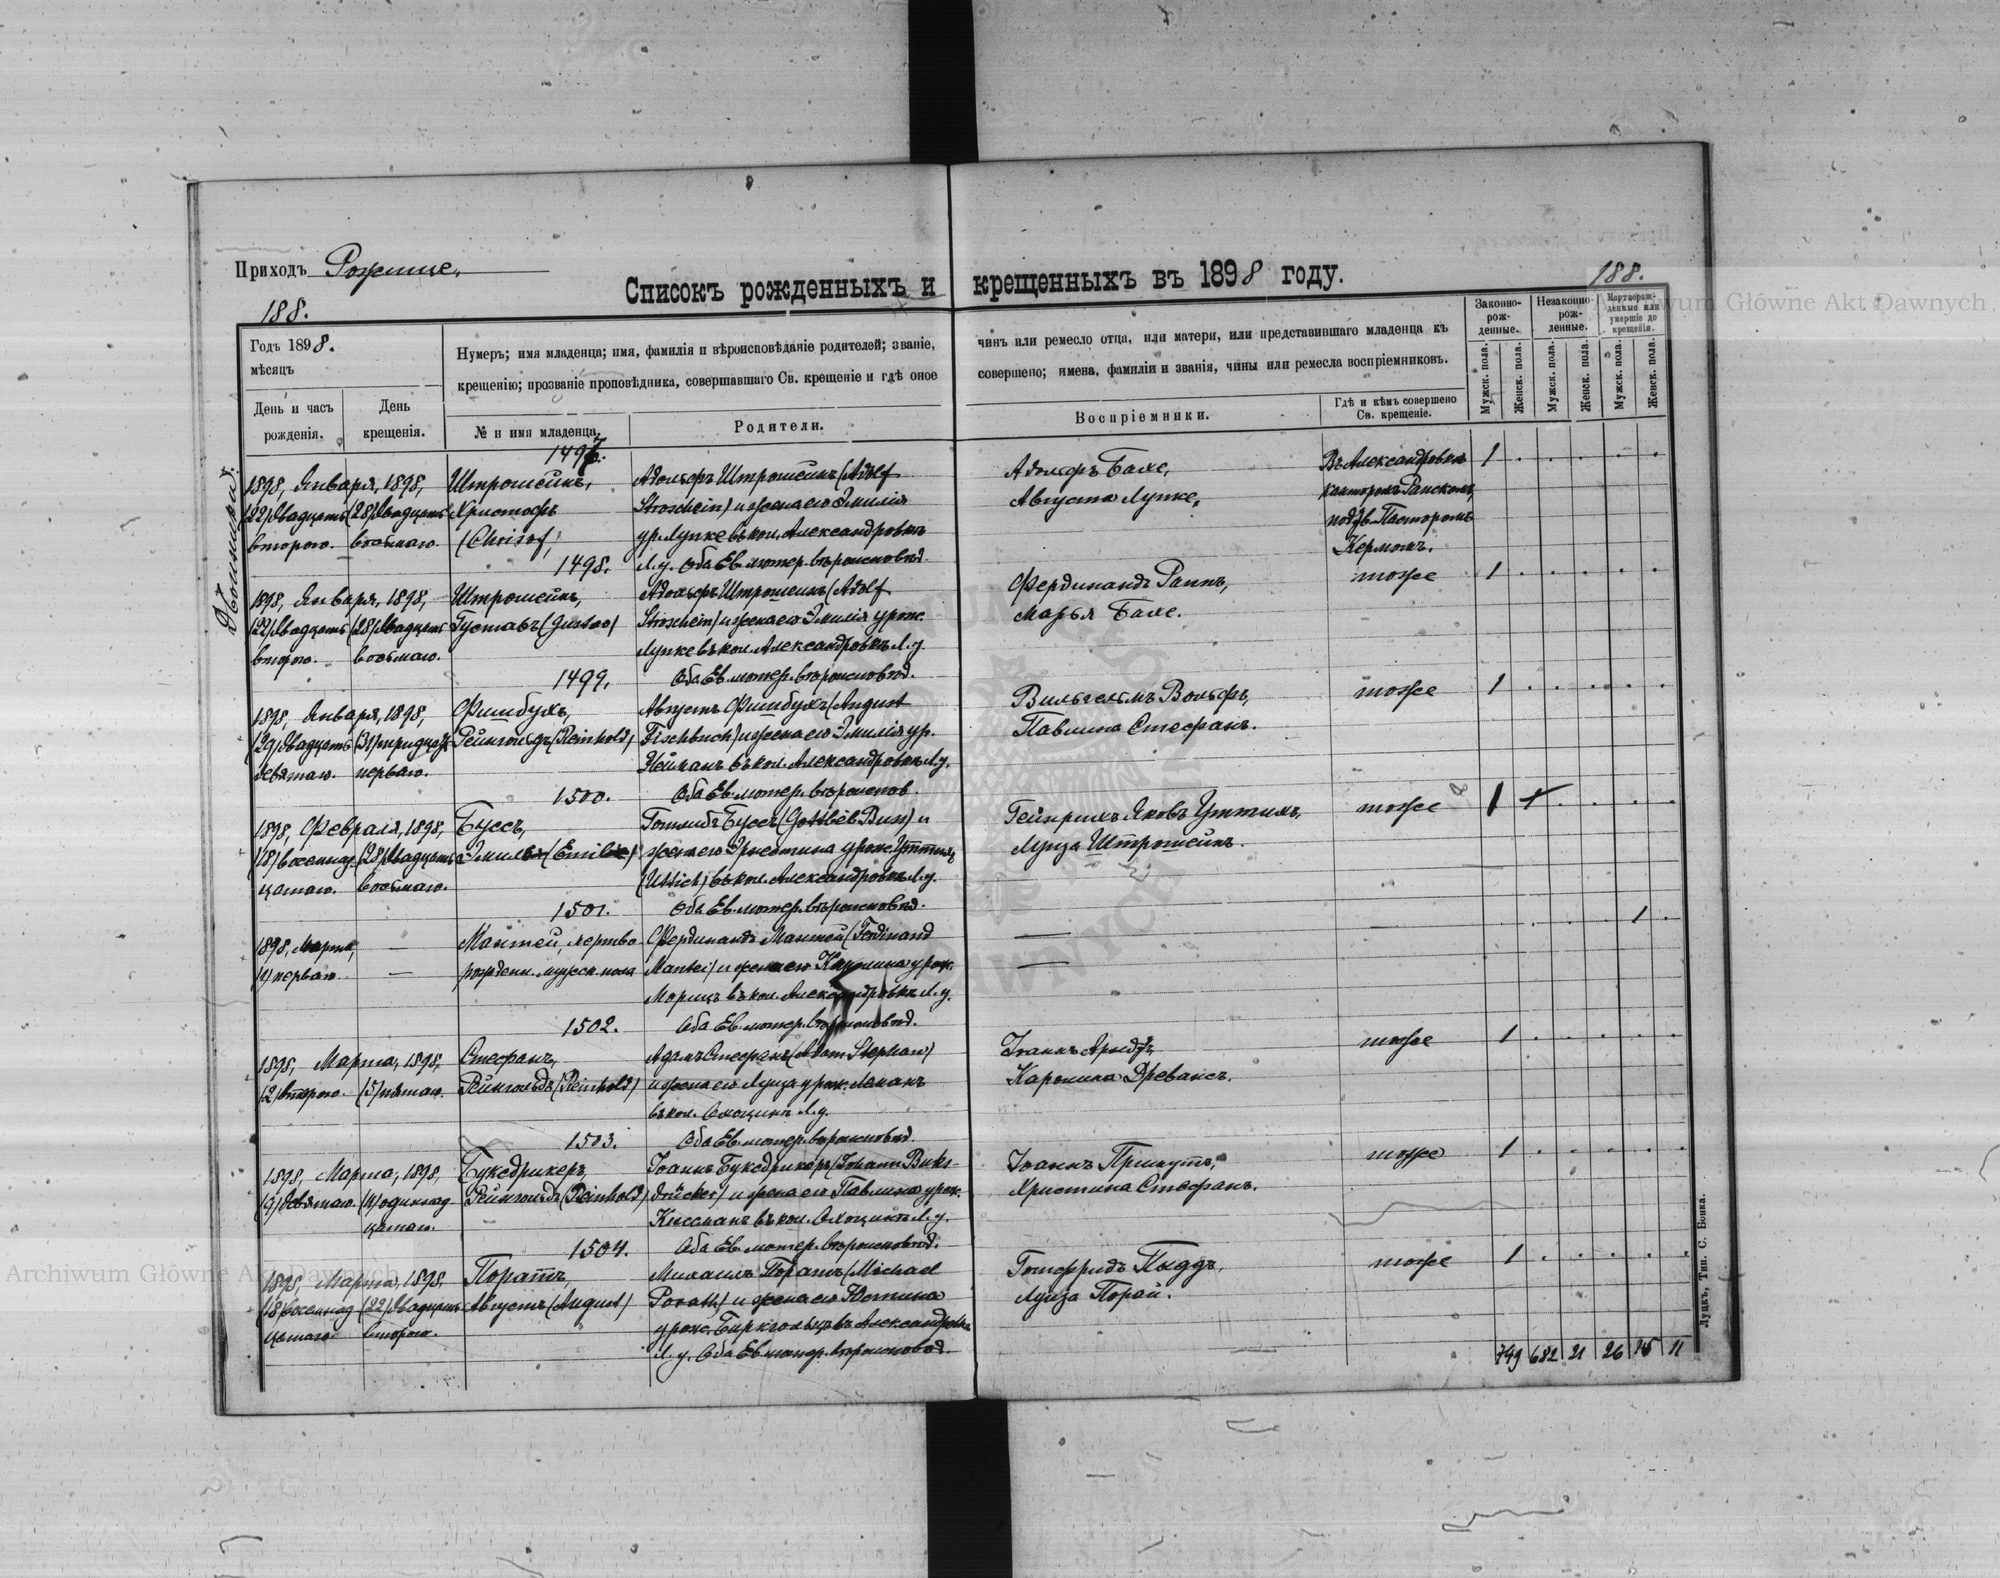 Приходъ Рожище.
188.
Списокъ рожденныхъ и крещенныхъ въ 1898 году.
188.
Годъ 1898.
мѣсяцъ
День и часъ рожденія.
День крещенія.
Нумеръ; имя младенца; имя, фамилія и вѣроисповѣданіе родителей; званіе, чинъ или ремесло отца, или матери, или представившаго младенца къ
крещенію; прозваніе проповѣдника, совершавшаго Св. крещеніе и гдѣ оное совершено; имена, фамиліи и званія, чины или ремесла воспріемниковъ.
№ и имя младенца.
Родители.
Воспріемники.
Гдѣ и кѣмъ совершено Св. крещеніе.
Законно-рож-денные.
Незаконно-рож-денные.
Мертворож-денные или умершіе до крещенія.
Мужск. пола.
Женск. пола.
Мужск. пола.
Женск. пола.
Мужск. пола.
Женск. пола.
Двойники
1497.
1898, Января, 1898, Штрошейнъ, Адольфъ Штрошейнъ (Adolf Адольфъ Бахе, Въ Александровкѣ 1
(22) двадцать (28) двадцать Христофъ Stroschein) и жена его Эмилія Августа Лупке, канторомъ Ранскомъ,
второго. восьмаго. (Christof, ур. Лупке въ кол. Александровкѣ подтв. Пасторомъ
1498. Л. у. Оба Ев. лютер. вѣроисповѣд. Кермомъ.
1898, Января, 1898, Штрошейнъ, Адольфъ Штрошейнъ (Adolf Фердинандъ Раннъ, тоже 1
(22) двадцать (28) двадцать Густавъ (Gustav) Stroschein) и жена его Эмилія урож. Марья Бахе.
второго. восьмаго. Лупке въ кол. Александровкѣ Л. у.
1499. Оба Ев. лютер. вѣроисповѣд.
1898, Января, 1898, Фишбухъ, Августъ Фишбухъ (August Вильгельмъ Вольфъ, тоже 1
(29) двадцать (31) тридцать Рейнгольдъ (Reinhold) Fischbuch) и жена его Эмилія ур. Павлина Стефанъ.
девятаго. перваго. Нейманъ въ кол. Александровкѣ Л. у.
1500. Оба Ев. лютер. вѣроиспов.
1898, Февраля, 1898, Буссъ, Готлибъ Буссъ (Gottlieb Buss) и Гейнрихъ Яковъ Уттихъ, тоже 1
(18) восемнад- (28) двадцать жена его Эрнестина урож. Уттихъ Луиза Штрошейнъ.
цатаго. восьмаго. (Uttich) въ кол. Александровкѣ Л. у.
1501. Оба Ев. лютер. вѣроисповѣд. 1
1898, Марта, — Мантей, мертво Фердинандъ Мантей (Ferdinand —
(1) перваго. — рожденн. мужск. пола Mantei) и жена его Каролина урож. —
Морицъ въ кол. Александровкѣ Л. у.
1502. Оба Ев. лютер. вѣроисповѣд.
1898, Марта, 1898, Стефанъ, Адамъ Стефанъ (Adam Stephan) Іоаннъ Арндтъ, тоже 1
(2) второго. (5) пятаго. Рейнгольдъ (Reinhold) и жена его Луиза урож. Леманъ Каролина Древансъ.
въ кол. Л. у.
1503. Оба Ев. лютер. вѣроисповѣд.
1898, Марта, 1898, Буксдрикеръ, Іоаннъ Буксдрикеръ (Johann Buks- Іоаннъ тоже 1
(9) девятаго. (11) одиннад- Рейнгольдъ (Reinhold) drücker) и жена его Павлина урож. Христина Стефанъ.
цатаго. Киссманъ въ кол. Л. у.
1504. Оба Ев. лютер. вѣроисповѣд.
1898, Марта, 1898, Поратъ, Михаилъ Поратъ (Michael Готфридъ тоже 1
(18) восемнад- (22) двадцать Августъ (August) Porath) и жена его Юстина Луиза Порай.
цатаго. второго. урож. Биркгольцъ въ Александровкѣ
Л. у. Оба Ев. лютер. вѣроисповѣд.
749 682 21 26 11
Луцкъ, Тип. С. Бонка.
Archiwum Główne Akt Dawnych
Archiwum Główne Akt Dawnych